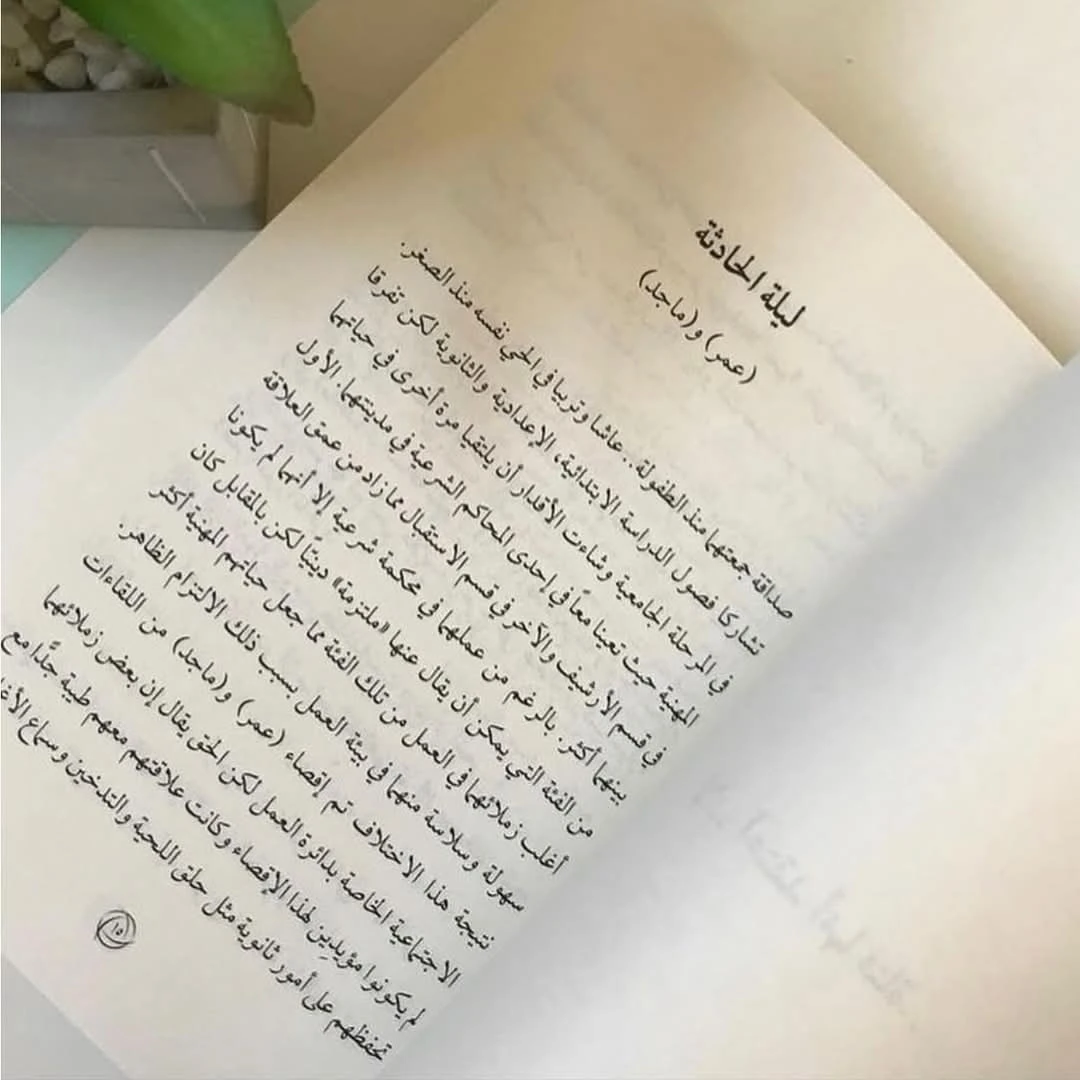 ليلة الحادثة
(عمر) و(ماجد)
صداقة جمعتهما منذ الطفولة.. عاشا وتربيا في الحي نفسه منذ الصغر.
تشاركا فصول الدراسة الابتدائية، الإعدادية والثانوية لكن تفرقا
في المرحلة الجامعية وشاءت الأقدار أن يلتقيا مرة أخرى في حياتهما
المهنية حيث تعينا معاً في إحدى المحاكم الشرعية في مدينتهما. الأول
في قسم الأرشيف والآخر في قسم الاستقبال مما زاد من عمق العلاقة
بينهما أكثر. بالرغم من عملهما في محكمة شرعية إلا أنهما لم يكونا
من الفئة التي يمكن أن يقال عنها «ملتزمة» دينيّاً لكن بالمقابل كان
أغلب زملائهما في العمل من تلك الفئة مما جعل حياتهم المهنية أكثر
سهولة وسلاسة منهما في بيئة العمل بسبب ذلك الالتزام الظاهر.
نتيجة هذا الاختلاف تم إقصاء (عمر) و(ماجد) من اللقاءات
الاجتماعية الخاصة بدائرة العمل لكن الحق يقال إن بعض زملائهما
لم يكونوا مؤيدين لهذا الإقصاء وكانت علاقتهم معهم طيبة جدًّا مع
تحفظهم على أمور ثانوية مثل حلق اللحية والتدخين وسماع
١٥